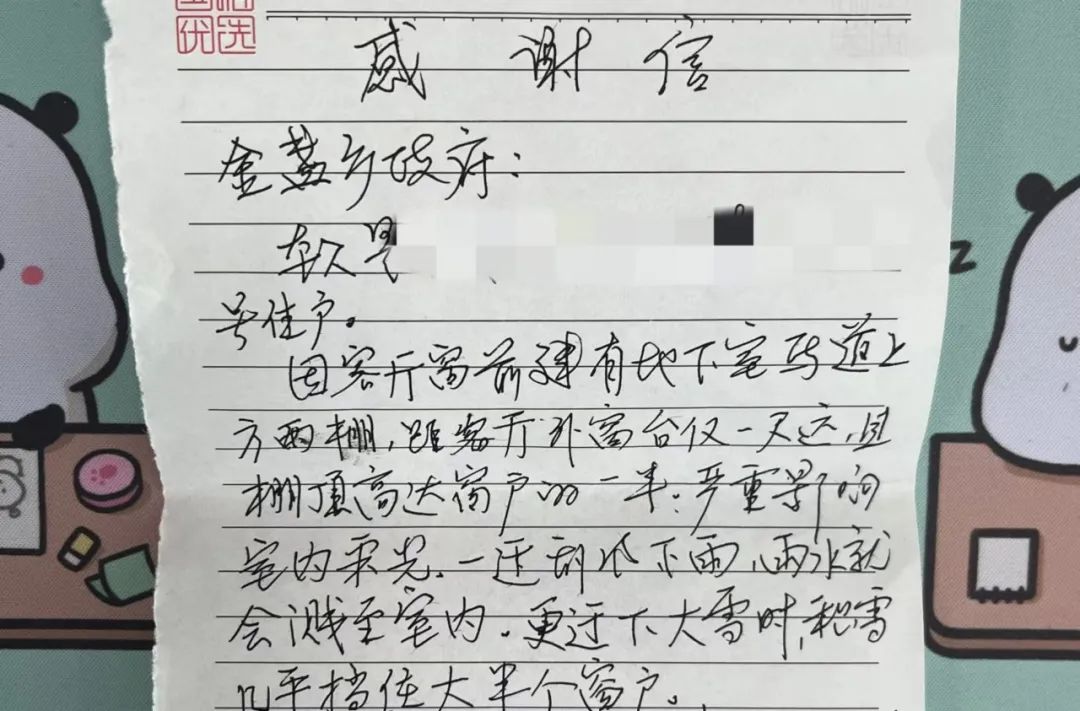 优选
感 谢 信
金盏乡政府:
我是
号住户。
因客厅窗前建有地下室马道上
方雨棚,距客厅外窗台仅一尺远,且
棚顶高达窗户的一半.严重影响
室内采光.一迂刮风下雨,雨水就
会溅至室内.更迂下大雪时,积雪
几乎挡住大半个窗户。
z